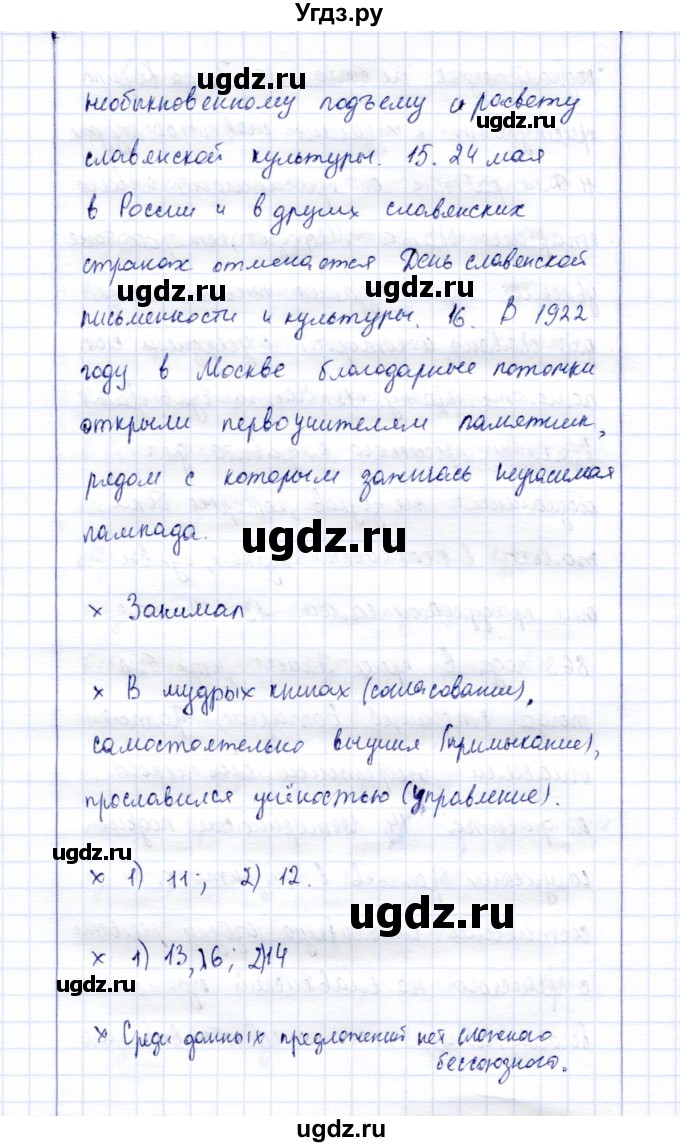 Угдз.ру
ugdz.ru
необыкновенному подъему и расвету
ugdz.ru
славянской культуры. 15. 24 мая
в России и в других славянских
странах отмечается День славенской
ugdz.ru
ugdz.ru
письменности и культуры. 16. В 1922
году в Москве благодарные потомки
открыли первоучителям памятник,
рядом с которым зажглась неугасимая
лампада.
ugdz.ru
× Занимал
× В мудрых книгах (согласование),
самостоятельно выучил (примыкание),
прославился учёностью (управление).
ugdz.ru
× 1) 11; 2) 12.
ugdz.ru
× 1) 13, 16; 2) 14
ugdz.ru
× Среди данных предложений нет сложного
бессоюзного.
ugdz.ru